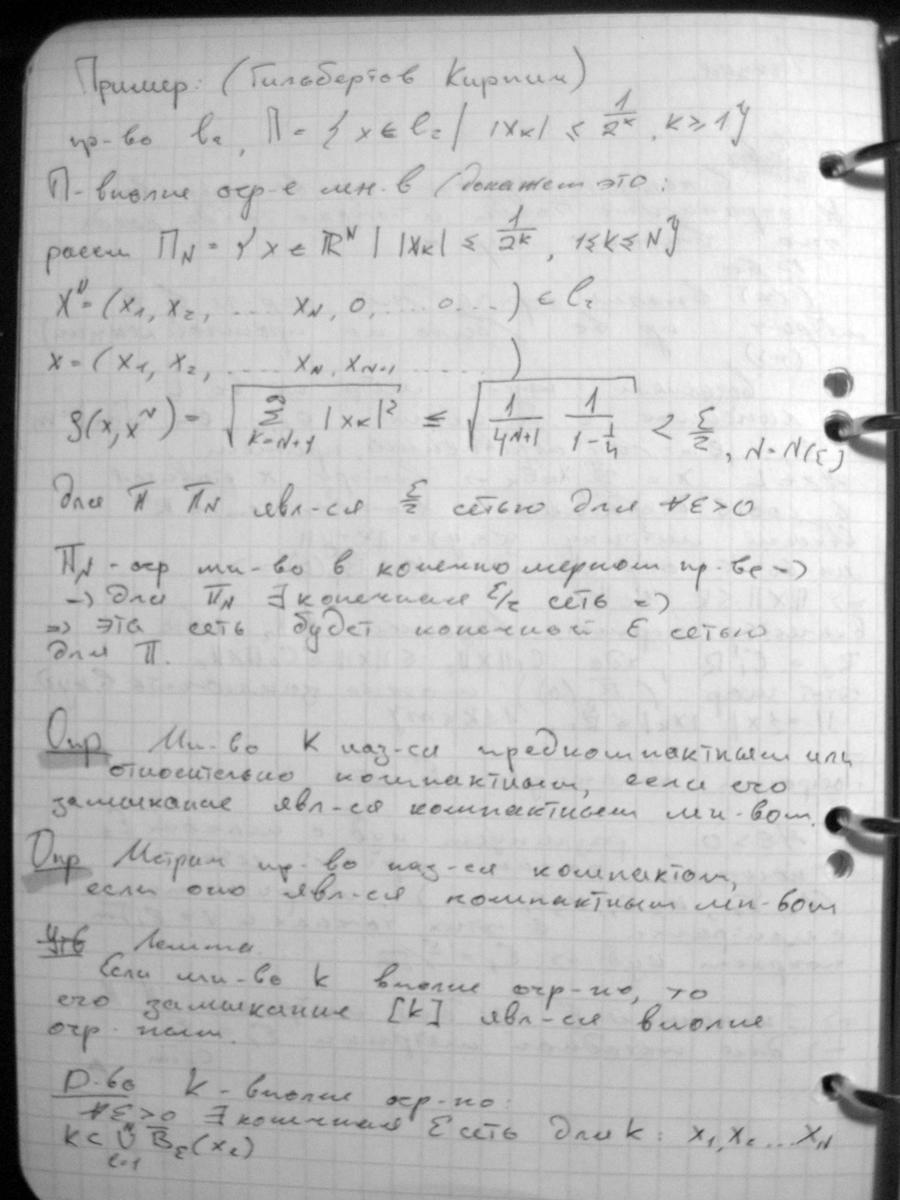 Пример: (Гильбертов Кирпич)
пр-во l₂, П = { x ∈ l₂ | |xₖ| ≤ 1/2ᵏ, k ≥ 1}
П - вполне огр-е мн-в (докажем это:
рассм П_N = { x ∈ ℝᴺ | |xₖ| ≤ 1/2ᵏ, 1≤k≤N}
xᴺ = (x₁, x₂, ... x_N, 0, ... 0...) ∈ l₂
x = (x₁, x₂, .... x_N, x_{N+1} ........)
ρ(x, xᴺ) = √(∑_{k=N+1}^∞ |xₖ|²) ≤ √(1/4^{N+1} 1/(1-1/4)) < ε/2, N=N(ε)
Для П П_N явл-ся ε/2 сетью для ∀ε>0
П_N - огр мн-во в конечномерном пр-ве =>
=> для П_N ∃ конечная ε/2 сеть =>
=> эта сеть будет конечной ε сетью
для П.
Опр Мн-во K наз-ся предкомпактным или
относительно компактным, если его
замыкание явл-ся компактным мн-вом.
Опр Метрич пр-во наз-ся компактом,
если оно явл-ся компактным мн-вом
Утв Лемма
Если мн-во k вполне огр-но, то
его замыкание [k] явл-ся вполне
огр-ным.
D-во K - вполне огр-но:
∀ε>0 ∃ конечная ε сеть для k: x₁, x₂ ... x_N
k ⊂ ∪_{l=1}^N B̅_ε(x_l)